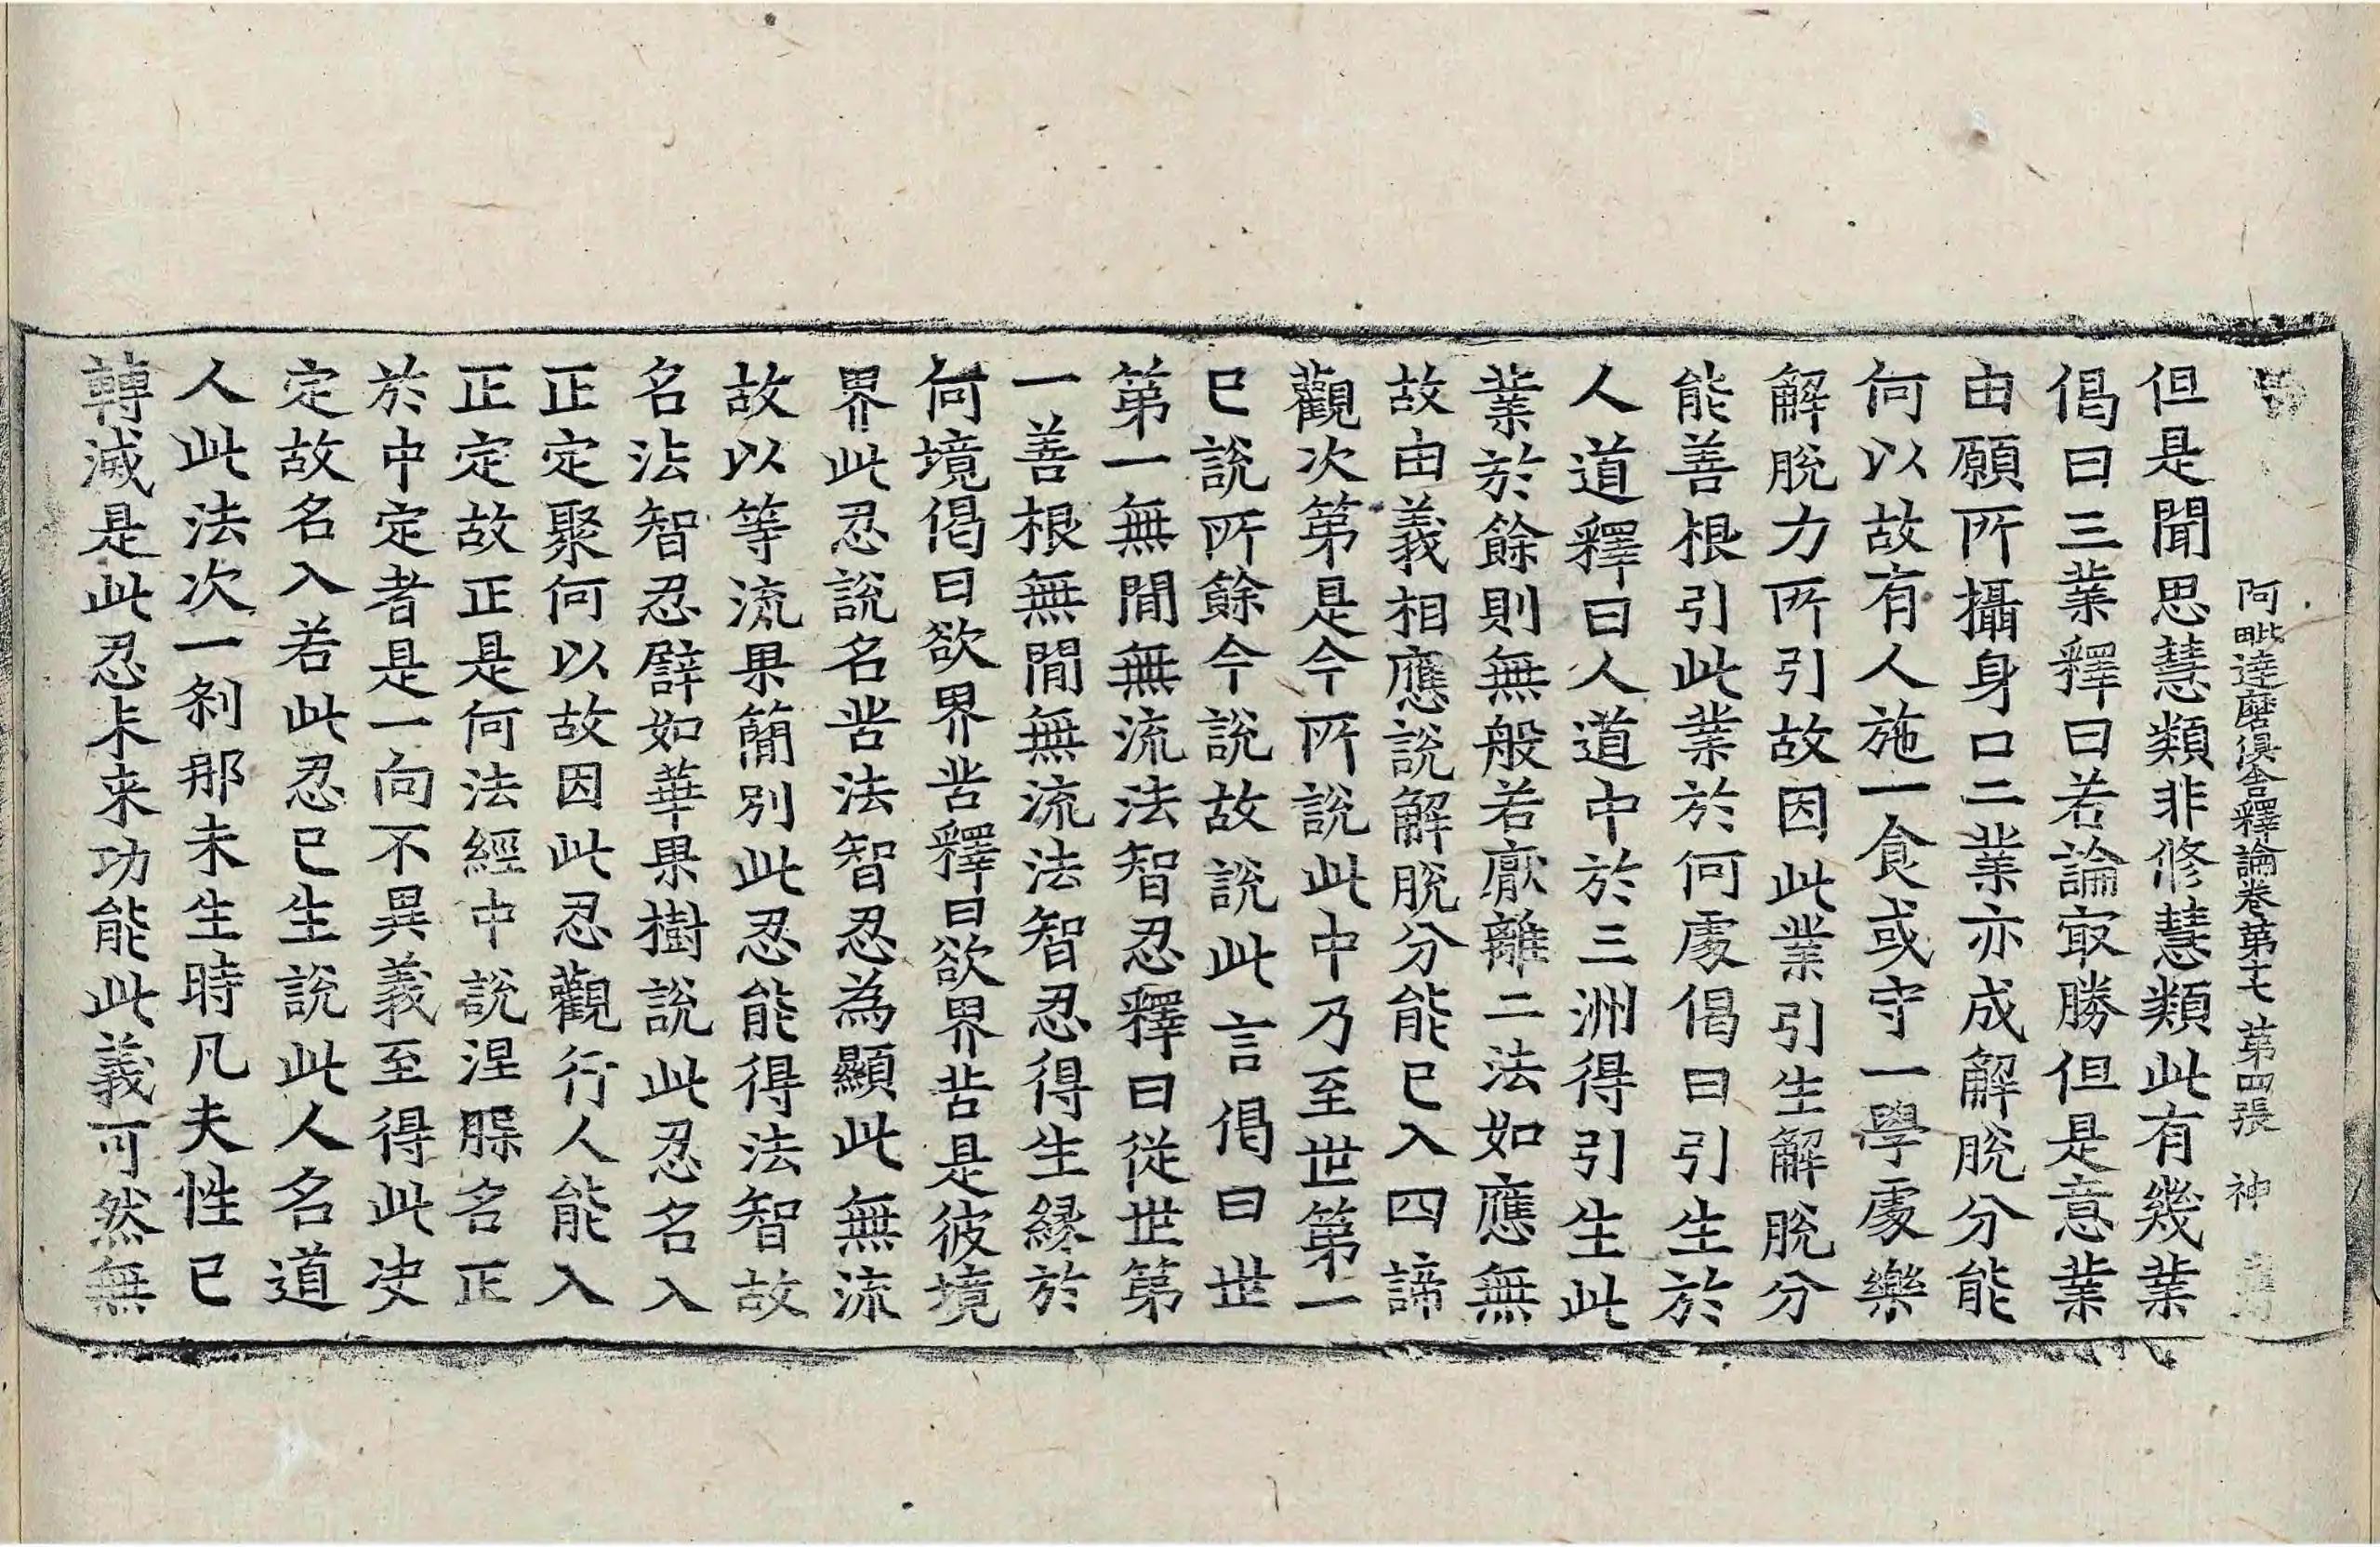 阿毗達磨俱舍釋論卷第十七 第四張 神
但是聞思慧類非修慧類此有幾業
偈曰三業釋曰若論㝡勝但是意業
由願所攝身口二業亦成解脫分能
何以故有人施一食或守一學處樂
解脫力所引故因此業引生解脫分
能善根引此業於何處偈曰引生於
人道釋曰人道中於三洲得引生此
業於餘則無般若厭離二法如應無
故由義相應說解脫分能已入四諦
觀次第是今所說此中乃至世第一
已說所餘今說故說此言偈曰世
第一無間無流法智忍釋曰從世第
一善根無間無流法智忍得生緣於
何境偈曰欲界苦釋曰欲界苦是彼境
界此忍說名苦法智忍為顯此無流
故以等流果簡別此忍能得法智故
名法智忍譬如華果樹說此忍名入
正定聚何以故因此忍觀行人能入
正定故正是何法經中說涅槃名正
於中定者是一向不異義至得此決
定故名入若此忍已生說此人名道
人此法次一剎那未生時凡夫性已
轉滅是此忍未来功能此義可然無